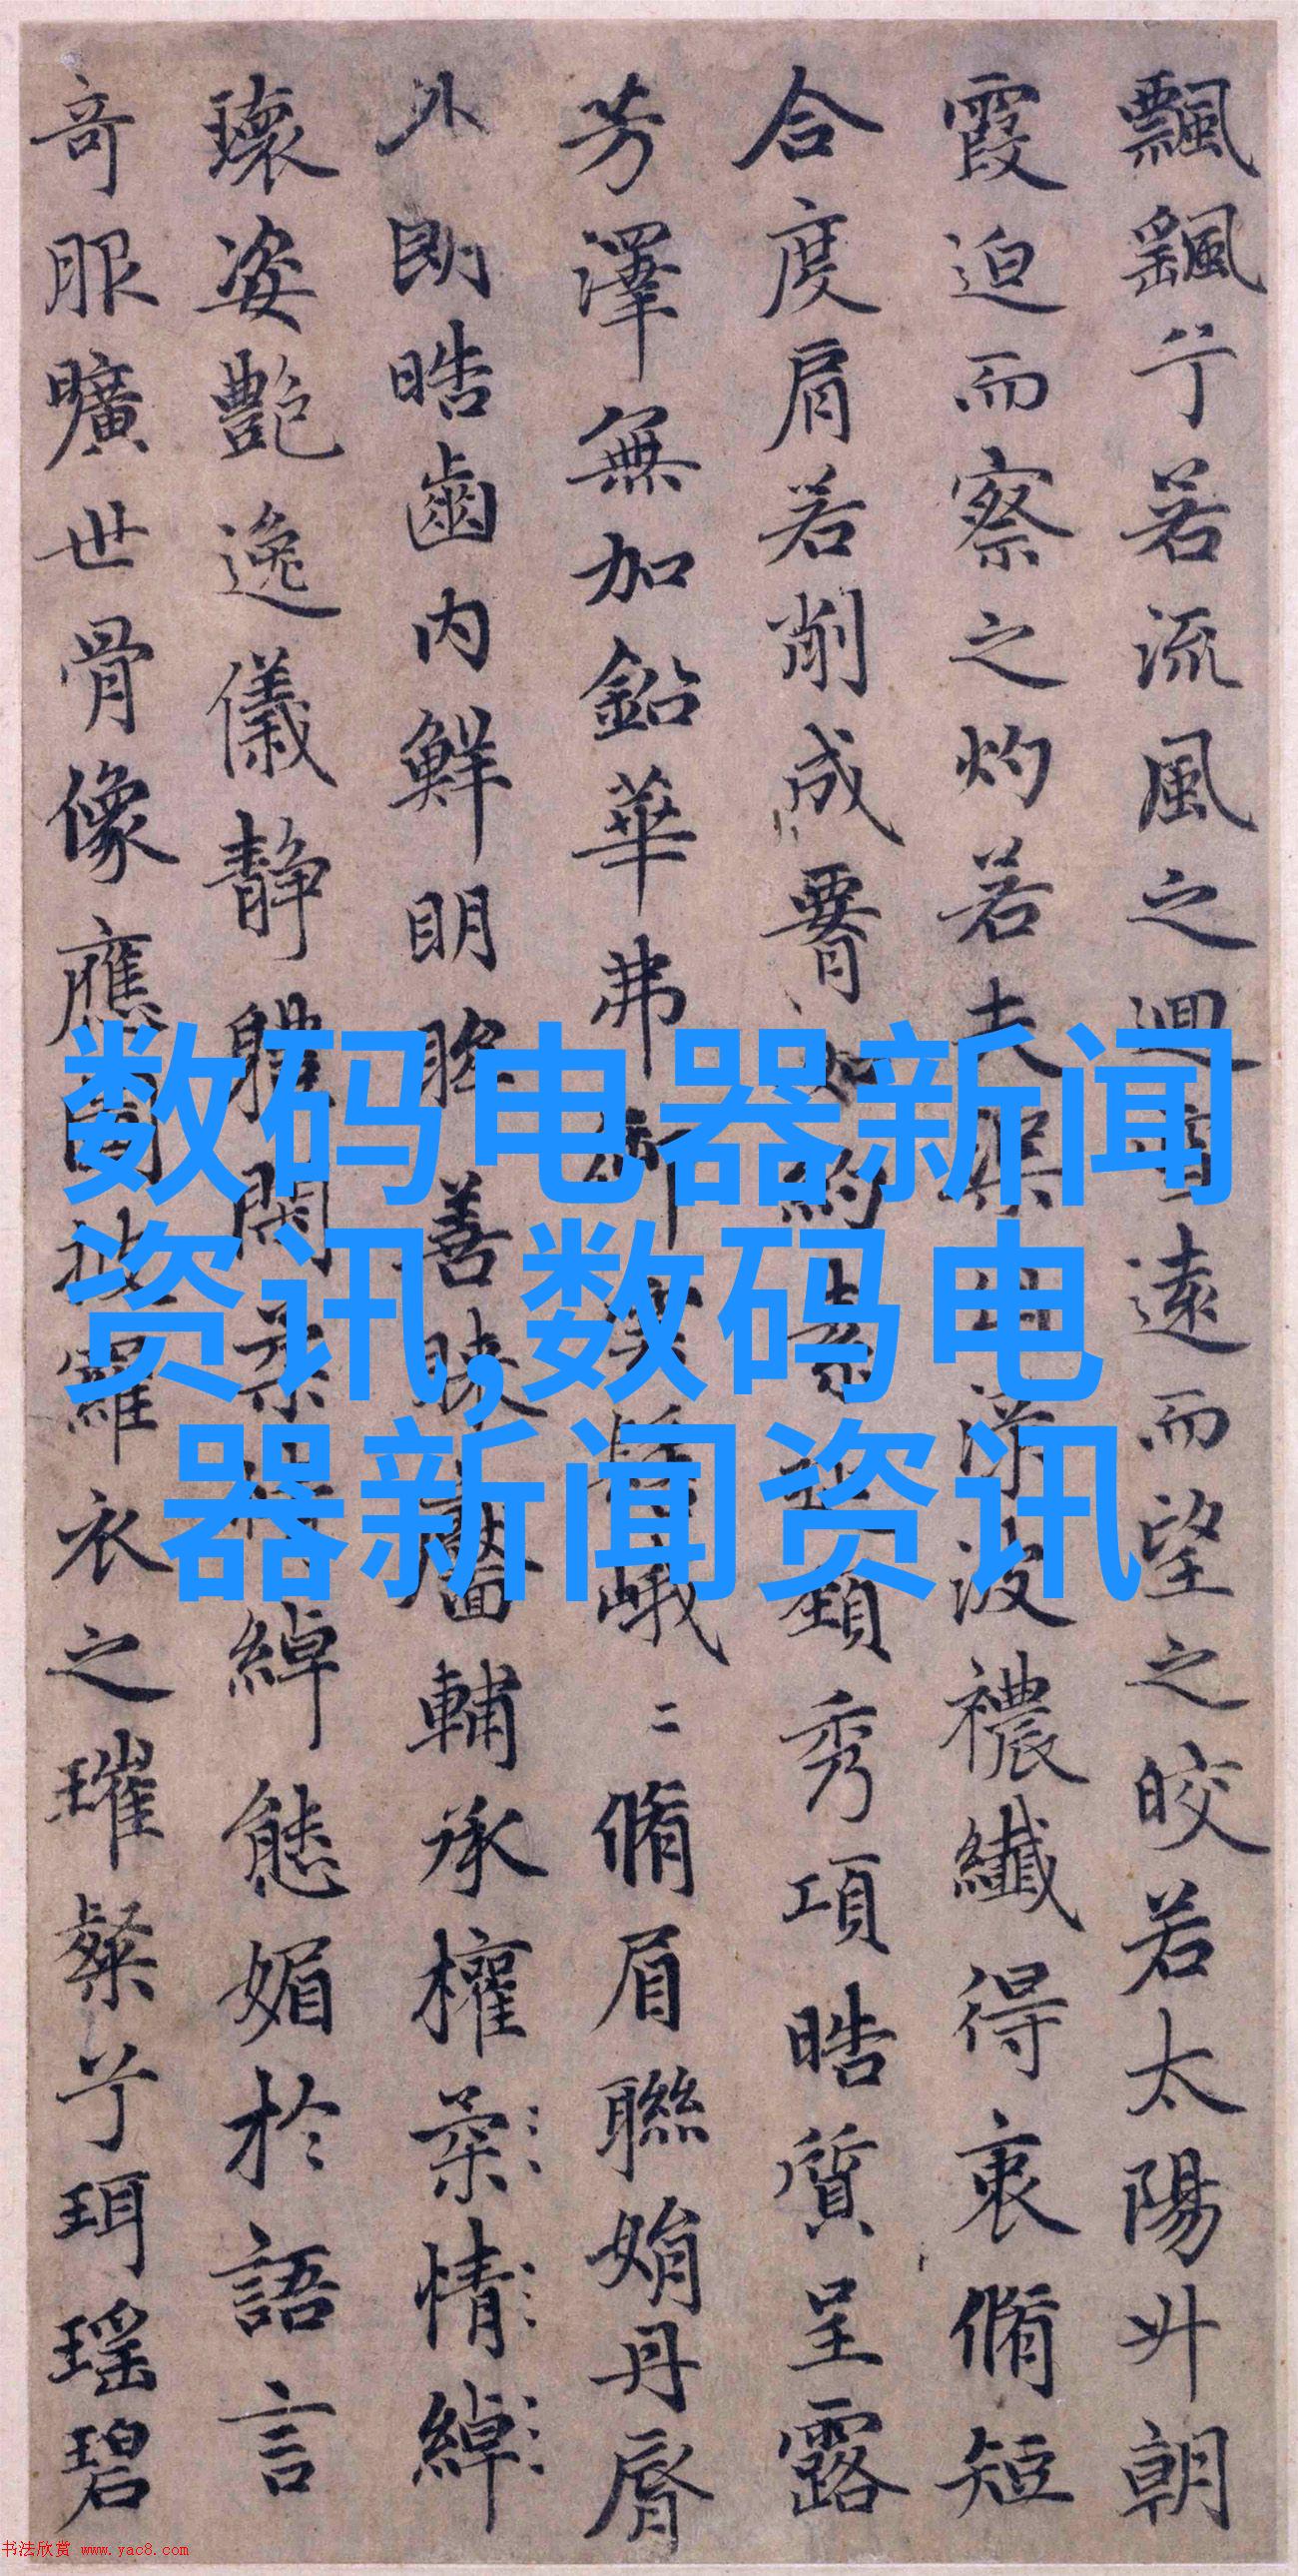 飄飖兮若流風之迴雪遠而望之皎若太陽升朝
霞迫而察之灼若夫渠出渌波襛纖得衷脩短
合度肩若削成腰如約素延頸秀項皓質呈露
芳澤無加鉛華弗御雲髻峨二脩眉聯娟丹脣
外朗皓齒內鮮明眸善睞靨輔承權柔情綽
瓌姿艷逸儀静體閑柔情綽態媚於語言
奇服曠世骨像應圖披羅衣之璀粲兮珥瑤碧
数码电器新闻
资讯,数码电
器新闻资讯
书法欣赏 www.yac8.com